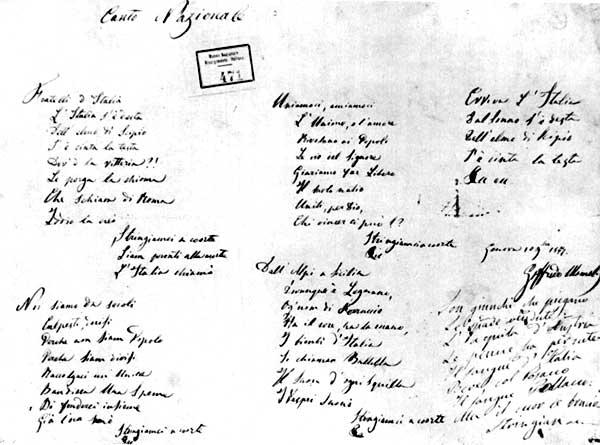 Canto Nazionale
Museo Nazionale
Risorgimento Italiano
471
Fratelli d'Italia
L'Italia s'è desta
Dell'elmo di Scipio
S'è cinta la testa
Dov'è la vittoria?!
Le porga la chioma
Che schiava di Roma
Iddio la creò
Stringiamci a coorte
Siam pronti alla morte
L'Italia chiamò
Noi siamo da secoli
Calpesti, derisi
Perché non siam Popolo
Perché siam divisi
Raccolgaci un'Unica
Bandiera una Speme
Di fonderci insieme
Già l'ora suonò
Stringiamci a coorte
Uniamoci, amiamoci
L'Unione, e l'amore
Rivelano ai Popoli
Le vie del Signore
Giuriamo far Libero
Il suolo natio
Uniti, per Dio,
Chi vincer ci può!?
Stringiamci a coorte
Dall'Alpi a Sicilia
Dovunque è Legnano,
Ogn'uom di Ferruccio
Ha il core, ha la mano,
I bimbi d'Italia
Si chiaman Balilla
Il Suon d'ogni squilla
I Vespri Suonò
Stringiamci a coorte
Evviva l'Italia
Dal sonno s'è desta
Dell'elmo di Scipio
S'è cinta la testa
Genova
Goffredo Mameli
Son giunchi che piegano
Le spade vendute
L'Aquila d'Austria
Le penne ha perdute
Il sangue d'Italia
Bevé, col Cosacco
Il sangue Polacco
Ma il cuor le bruciò
Stringiamci